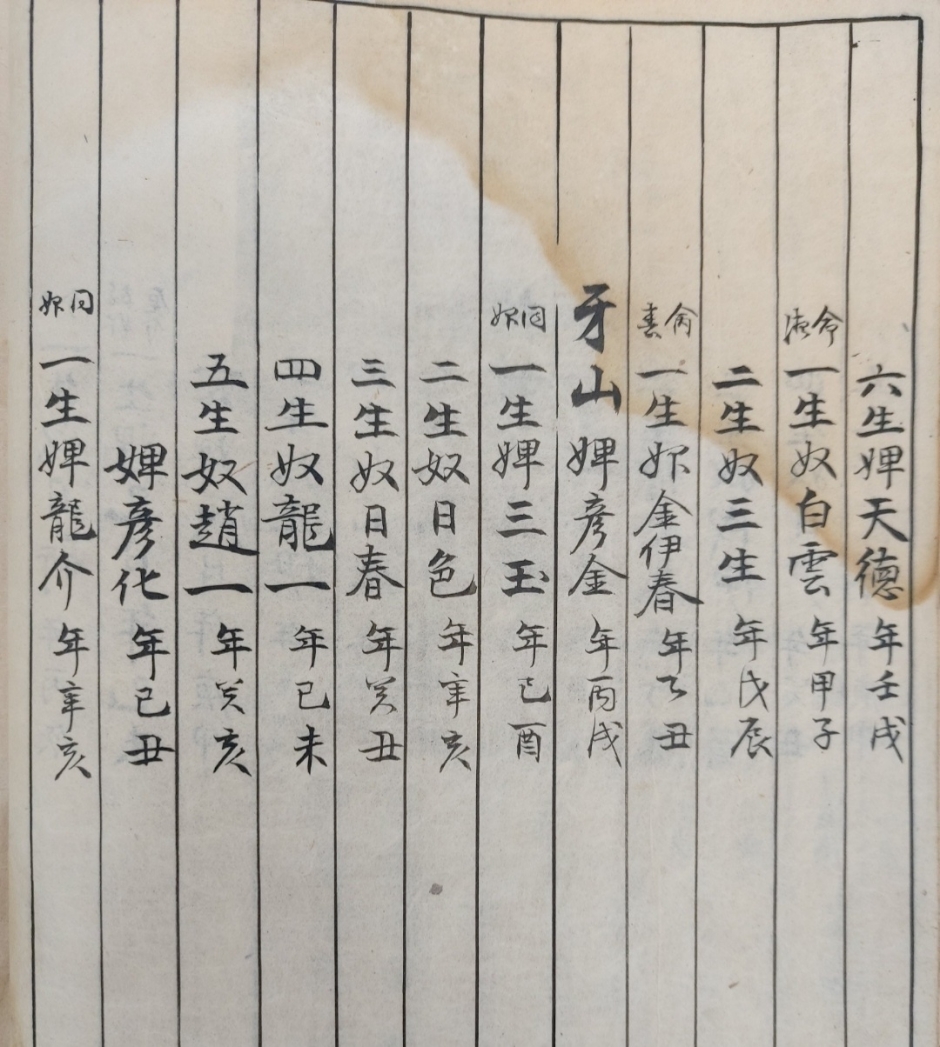 六生婢天德年壬戌
一生奴白雲年甲子
二生奴三生年戊辰
一生 金伊春年乙丑
牙山婢彥金年丙戌
同 一生婢三玉年己酉
二生奴日色年辛亥
三生奴日春年癸丑
四生奴龍一年己未
五生奴趙一年癸亥
婢彥化年己丑
同 一生婢龍介年辛亥